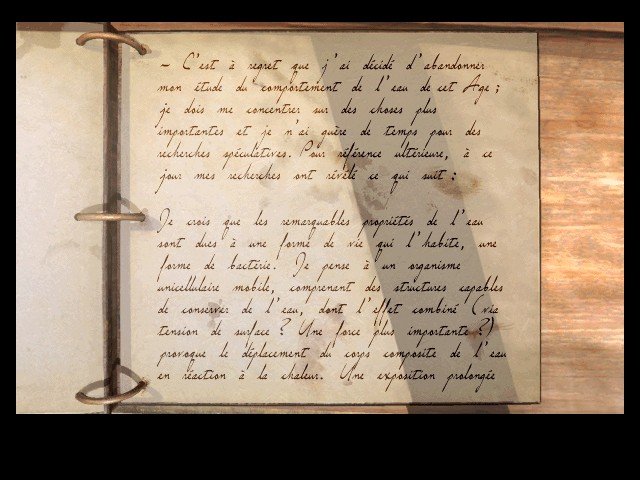 - C'est à regret que j'ai décidé d'abandonner
mon étude du comportement de l'eau de cet Age ;
je dois me concentrer sur des choses plus
importantes et je n'ai guère de temps pour des
recherches spéculatives. Pour référence ultérieure, à ce
jour mes recherches ont révélé ce qui suit :
Je crois que les remarquables propriétés de l'eau
sont dues à une forme de vie qui l'habite, une
forme de bactérie. Je pense à un organisme
unicellulaire mobile, comprenant des structures capables
de conserver de l'eau, dont l'effet combiné (via
tension de surface ? Une force plus importante ?)
provoque le déplacement du corps composite de l'eau
en réaction à la chaleur. Une exposition prolongée